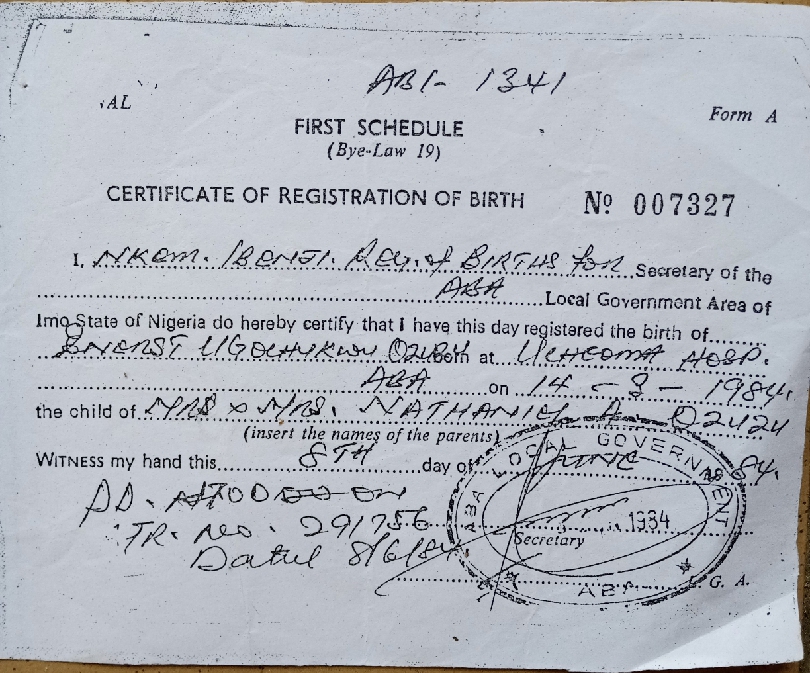 ABI- 1341
AL
Form A
FIRST SCHEDULE
(Bye-Law 19)
CERTIFICATE OF REGISTRATION OF BIRTH
No 007327
I, NKEM. IBENJI. Reg. of BIRTHS for Secretary of the
ABA Local Government Area of
Imo State of Nigeria do hereby certify that I have this day registered the birth of
UGOCHUKWU born at UCHEOMA HOSP.
ABA on 14 - 3 - 1984.
the child of MRS. NATHANIEL A.
(insert the names of the parents)
WITNESS my hand this 8TH day of JUNE 84.
TR. No. 291756
Dated 8/6/84
ABA LOCAL GOVERNMENT
1984
Secretary
ABA
L. G. A.